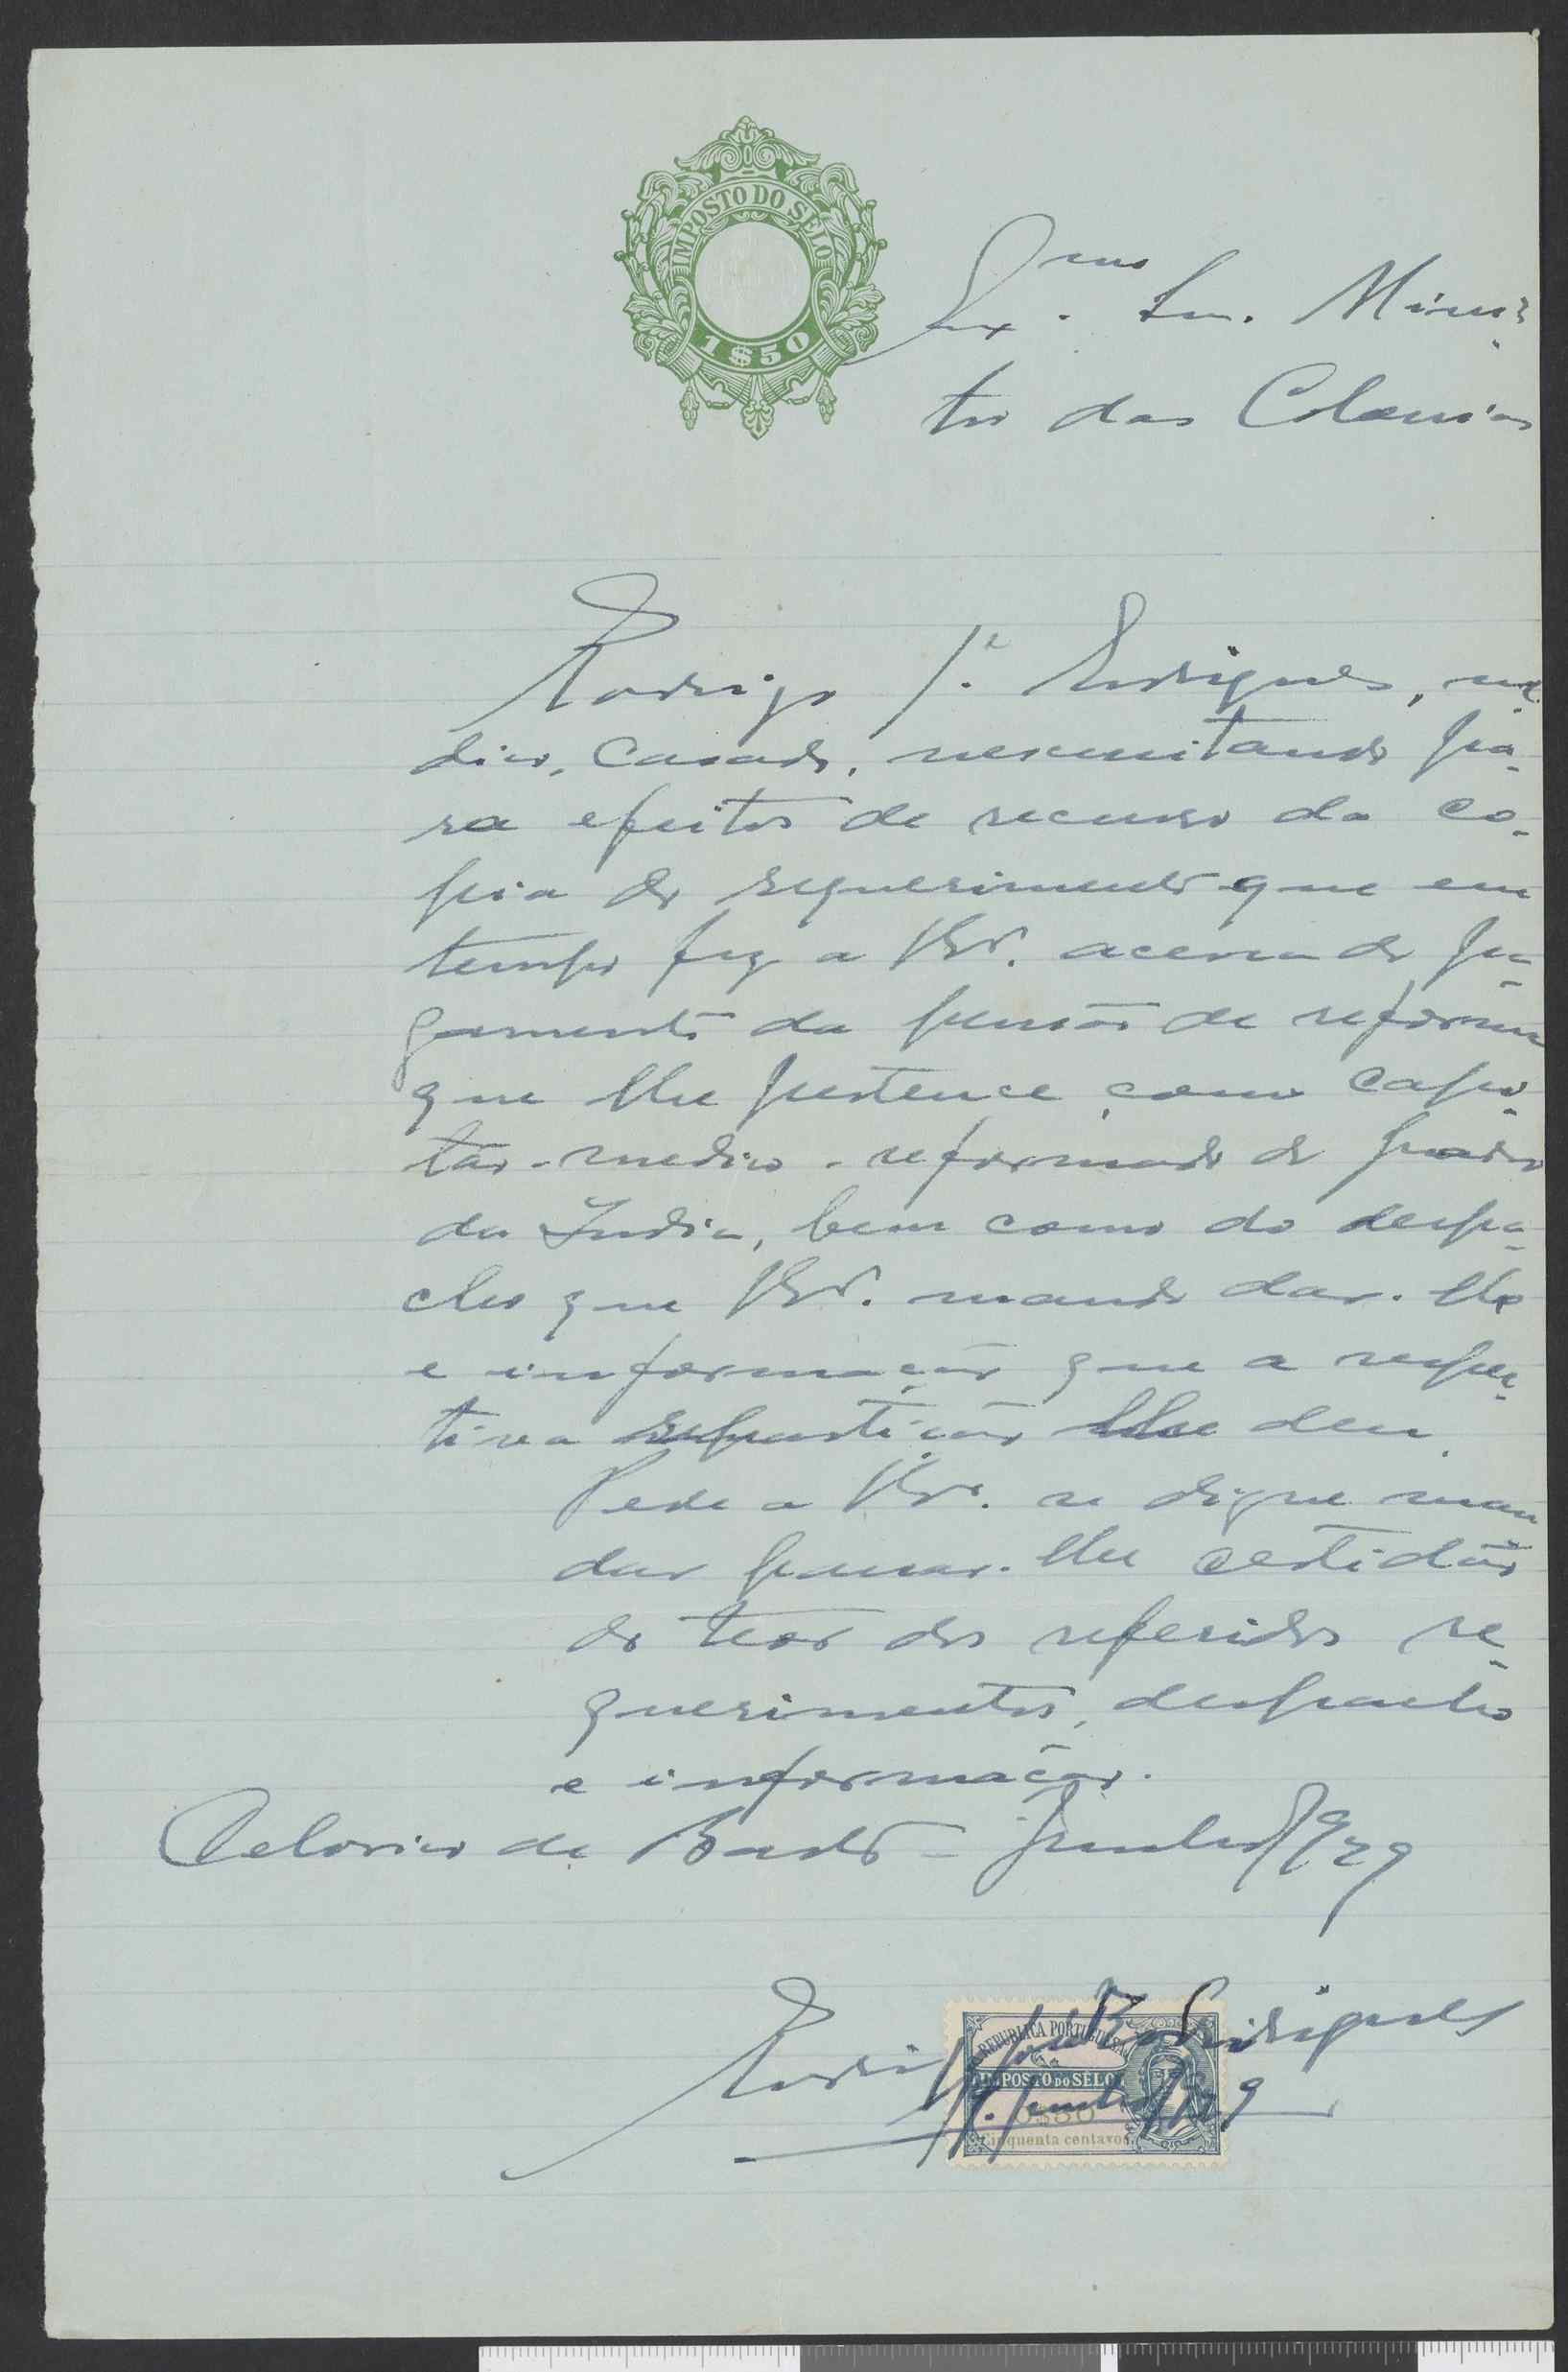 IMPOSTO DO SELO
1$50
Exmo. Snr. Minis-
tro das Colonias
Rodrigo J.é Rodrigues, me-
dico, casado, necessitando pa-
ra efeitos de recurso da co-
pia do requerimento que em
tempo fez a V. Ex.ª acerca do pa-
gamento da pensão de reforma
que lhe pertence como capi-
tão-medico-reformado do quadro
da India, bem como do despa-
cho que V. Ex.ª mando dar-lhe
e informação que a respe-
tiva repartição lhe deu.
Pede a V. Ex.ª se digne man
dar passar-lhe certidão
do teor dos referidos re-
querimentos, despacho
e informação.
Celorico de Basto - Junho 929
Rodrigo José Rodrigues
REPUBLICA PORTUGUESA
IMPOSTO DO SÊLO
0$50
Cinquenta centavos
Junho 929